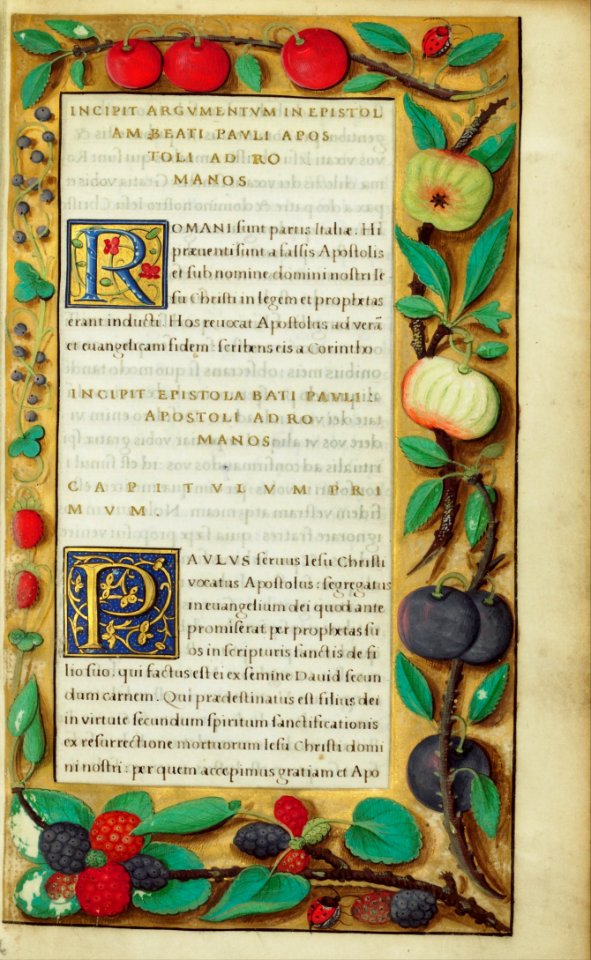 INCIPIT ARGVMENTVM IN EPISTOL
AM BEATI PAVLI APOS
TOLI AD RO
MANOS
ROMANI ſunt partis Italiæ. Hi
præuenti ſunt a falſis Apoſtolis
et ſub nomine domini noſtri Ie
ſu Chriſti in legem et prophetas
erant inducti. Hos reuocat Apoſtolus ad verā
et euangelicam fidem: ſcribens eis a Corintho
INCIPIT EPISTOLA BATI PAVLI:
APOSTOLI AD RO
MANOS
CAPITVLVM PRI
MVM.
PAVLVS ſeruus Ieſu Chriſti
vocatus Apoſtolus: ſegregatus
in euangelium dei quod ante
promiſerat per prophetas ſu
os in ſcripturis ſanctis de fi
lio ſuo, qui factus eſt ei ex ſemine Dauid ſecun
dum carnem. Qui prædeſtinatus eſt filius dei
in virtute ſecundum ſpiritum ſanctificationis
ex reſurrectione mortuorum Ieſu Chriſti domi
ni noſtri: per quem accepimus gratiam et Apo